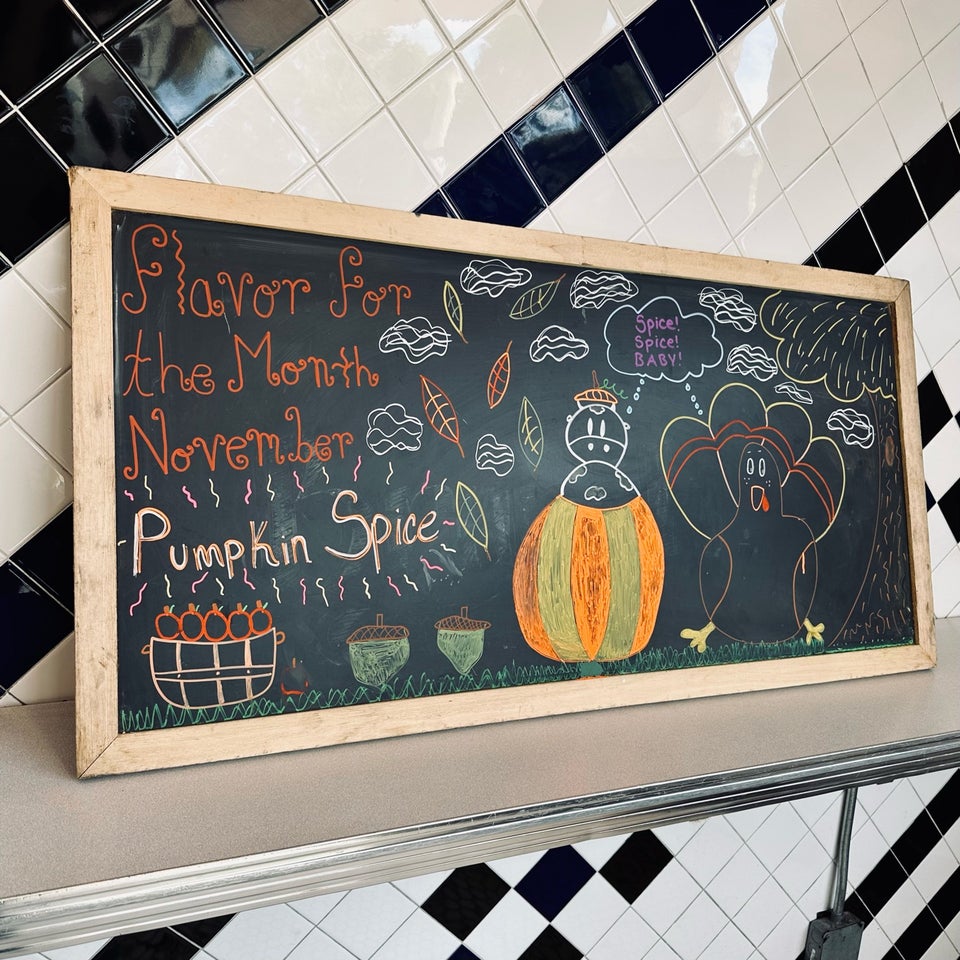 Flavor for
the Month
November
Pumpkin Spice
Spice!
Spice!
BABY!